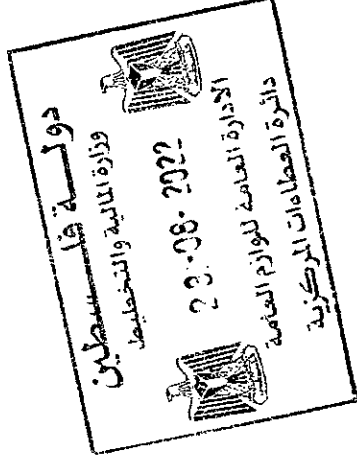 دولـــة فلـــسطين
وزارة المالية والتخطيط
-08- 2022
الادارة العامة للوازم العامة
دائرة العطاءات المركزية